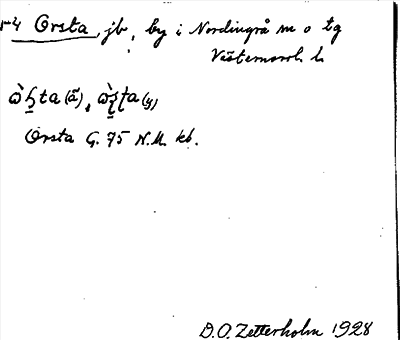 r4 Orsta, jb, by i Nordingrå sn o tg
Västernorrl. l.
(ä), (y)
Orsta G. 75 N.M. kb.
D.O. Zetterholm 1928